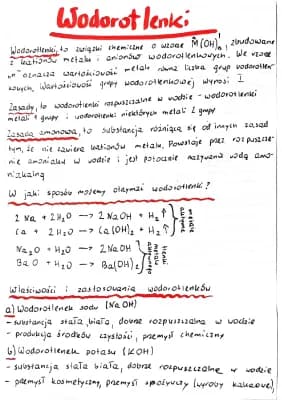 Wodorotlenki
Wodorotlenki, to związki chemiczne o wzorze M(OH)n, zbudowane
z kationów metalu i anionów wodorotlenkowych. We wzorze
"n" oznacza wartościowość metalu równa liczbie grup wodorotlen-
kowych. Wartościowość grupy wodorotlenkowej wynosi I.
Zasady, to wodorotlenki rozpuszczalne w wodzie - wodorotlenki
metali 1 grupy i wodorotlenki niektórych metali 2 grupy
Zasada amonowa, to substancja różniąca się od innych zasad
tym, że nie zawiera kationów metalu. Powstaje przez rozpuszcze-
nie amoniaku w wodzie i jest potocznie nazywana wodą amo-
niakalną
W jaki sposób możemy otrzymać wodorotlenki?
2 Na + 2H₂O → 2 NaOH + H₂↑
Ca + 2H₂O → Ca(OH)₂ + H₂↑
metale aktywne
Na₂O + H₂O → 2 NaOH
BaO + H₂O → Ba(OH)₂
tlenki metali aktywnego
Właściwości i zastosowania wodorotlenków
a) Wodorotlenek sodu (NaOH)
- substancja stała, biała, dobrze rozpuszczalna w wodzie
- produkcja środków czystości, przemysł chemiczny
b) Wodorotlenek potasu (KOH)
- substancja stała biała, dobrze rozpuszczalna w wodzie
- przemysł kosmetyczny, przemysł spożywczy (wyroby kakaowe),